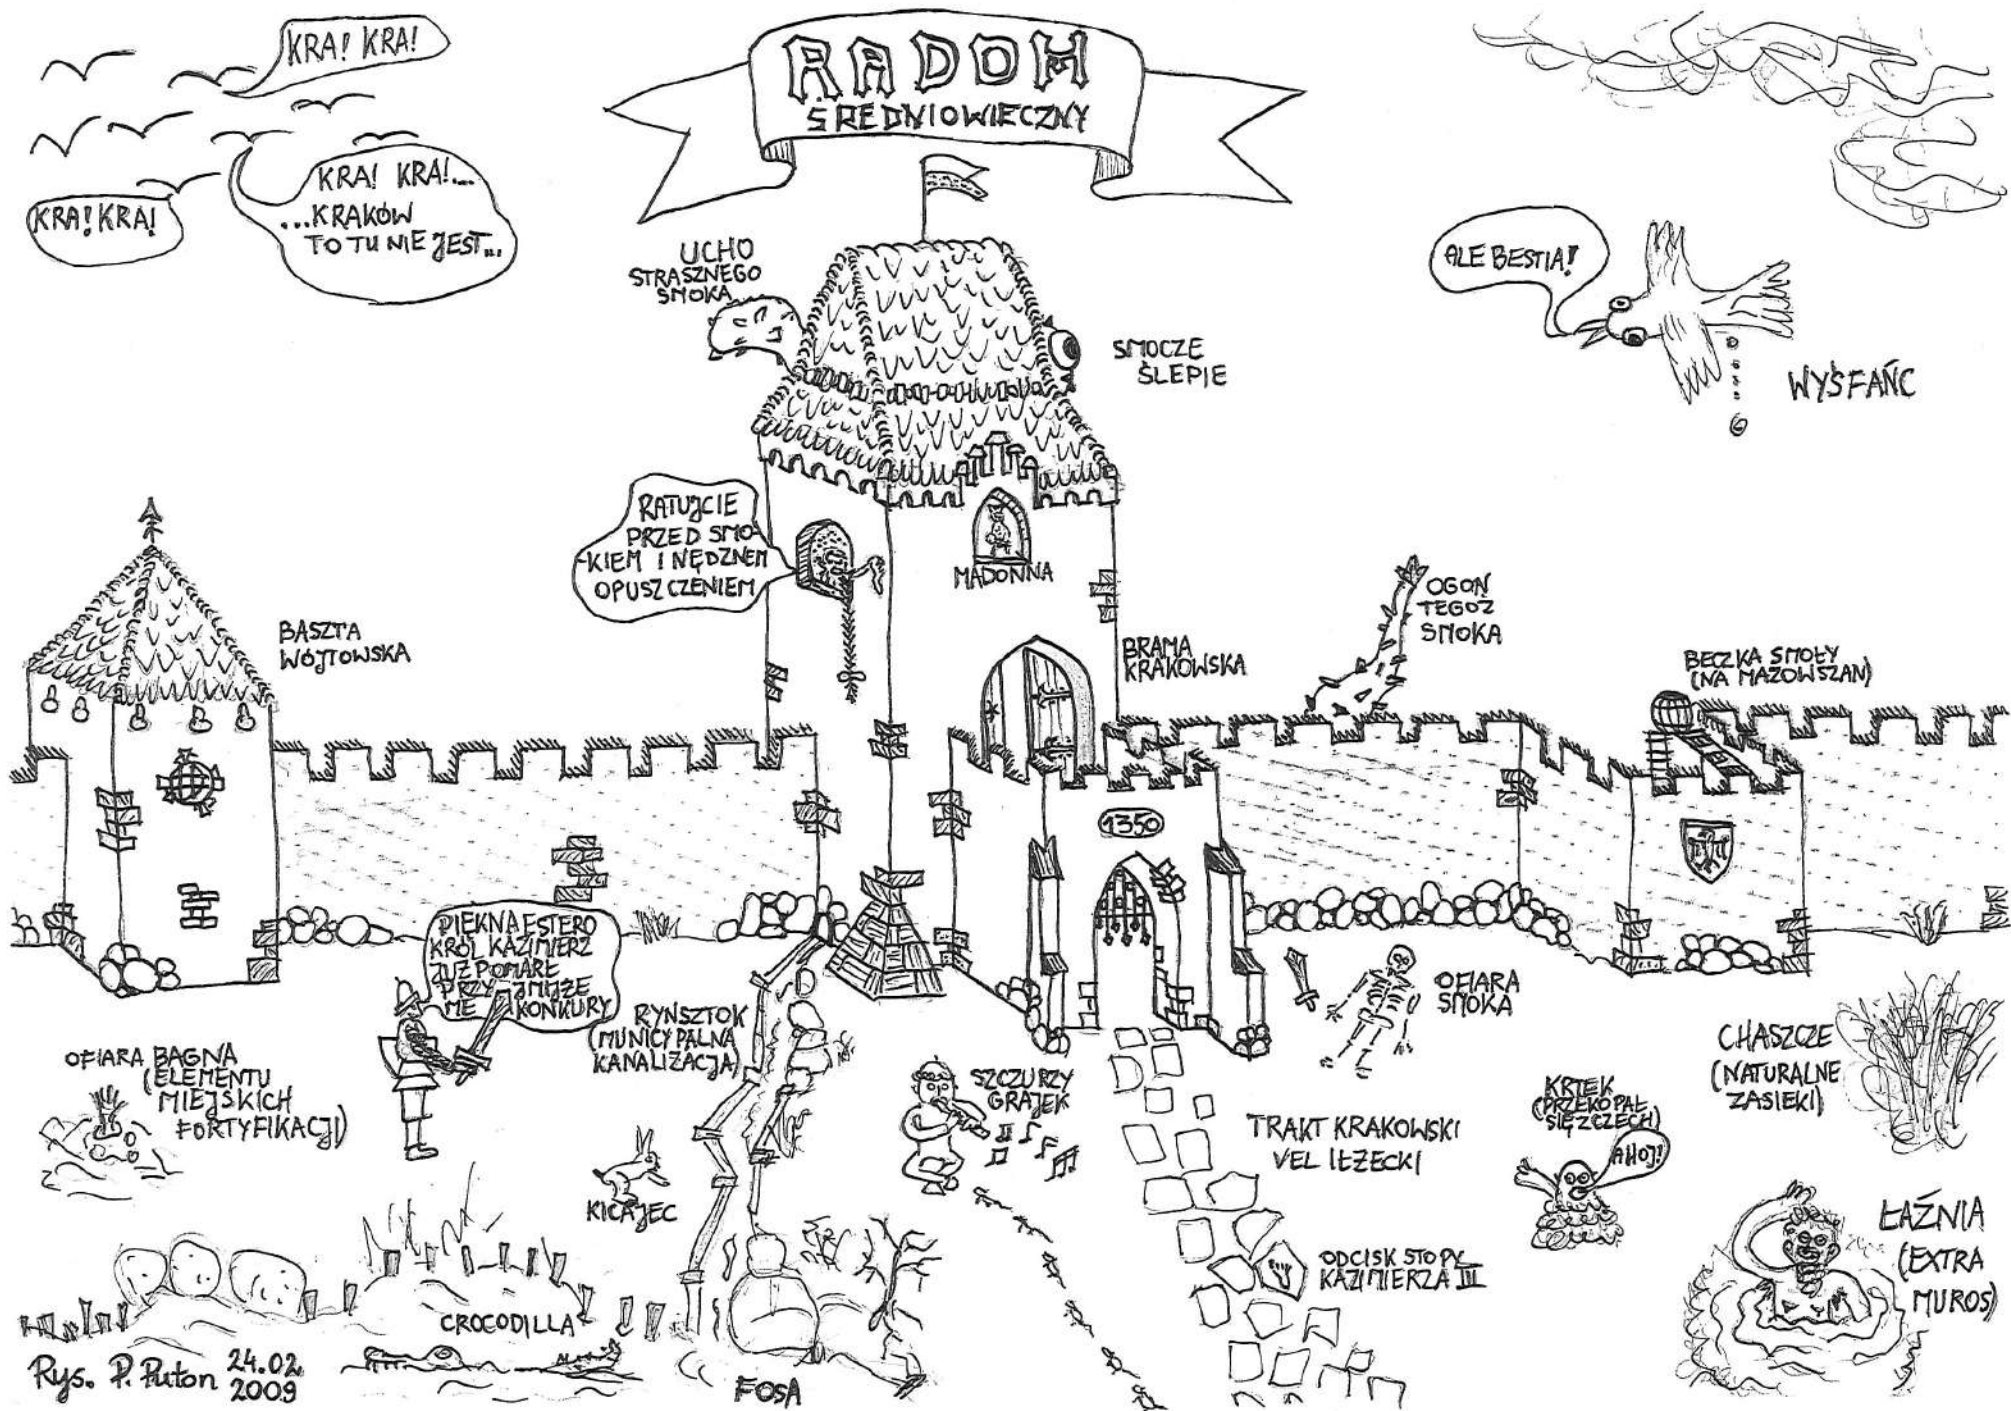 KRA! KRA!
RADOM
ŚREDNIOWIECZNY
KRA! KRA!...
...KRAKÓW
TO TU NIE JEST...
KRA! KRA!
UCHO
STRASZNEGO
SMOKA
ALE BESTIA!
SMOCZE
ŚLEPIE
WYSFAŃC
RATUJCIE
PRZED SMO-
-KIEM I NĘDZNEM
OPUSZCZENIEM
MADONNA
BASZTA
WÓJTOWSKA
BRAMA
KRAKOWSKA
OGON
TEGOŻ
SMOKA
BECZKA SMOŁY
(NA MAZOWSZAN)
1350
PIĘKNA ESTERO
KRÓL KAZIMIERZ
JUŻ POMARŁ
PRZYJMIJŻE
ME KONKURY
RYNSZTOK
(MUNICYPALNA
KANALIZACJA)
OFIARA
SMOKA
OFIARA BAGNA
(ELEMENTU
MIEJSKICH
FORTYFIKACJI)
SZCZURZY
GRAJEK
CHASZCZE
(NATURALNE
ZASIEKI)
KRTEK
(PRZEKOPAŁ
SIĘ Z CZECH)
AHOJ!
TRAKT KRAKOWSKI
VEL IŁŻECKI
KICAJEC
ŁAŹNIA
(EXTRA
MUROS)
ODCISK STOPY
KAZIMIERZA III
CROCODILLA
FOSA
Rys. P. Puton 24.02
2009